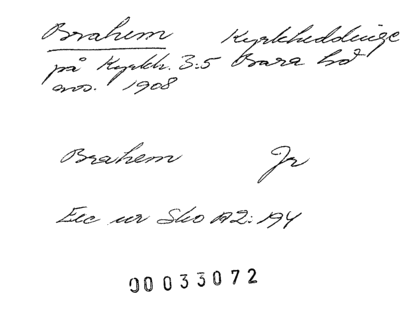 Brahem Kyrkheddinge
på Kyrkh. 3:5 Bara hd
avs. 1908
Brahem Jr
Exc ur Sko A2: 194
00033072